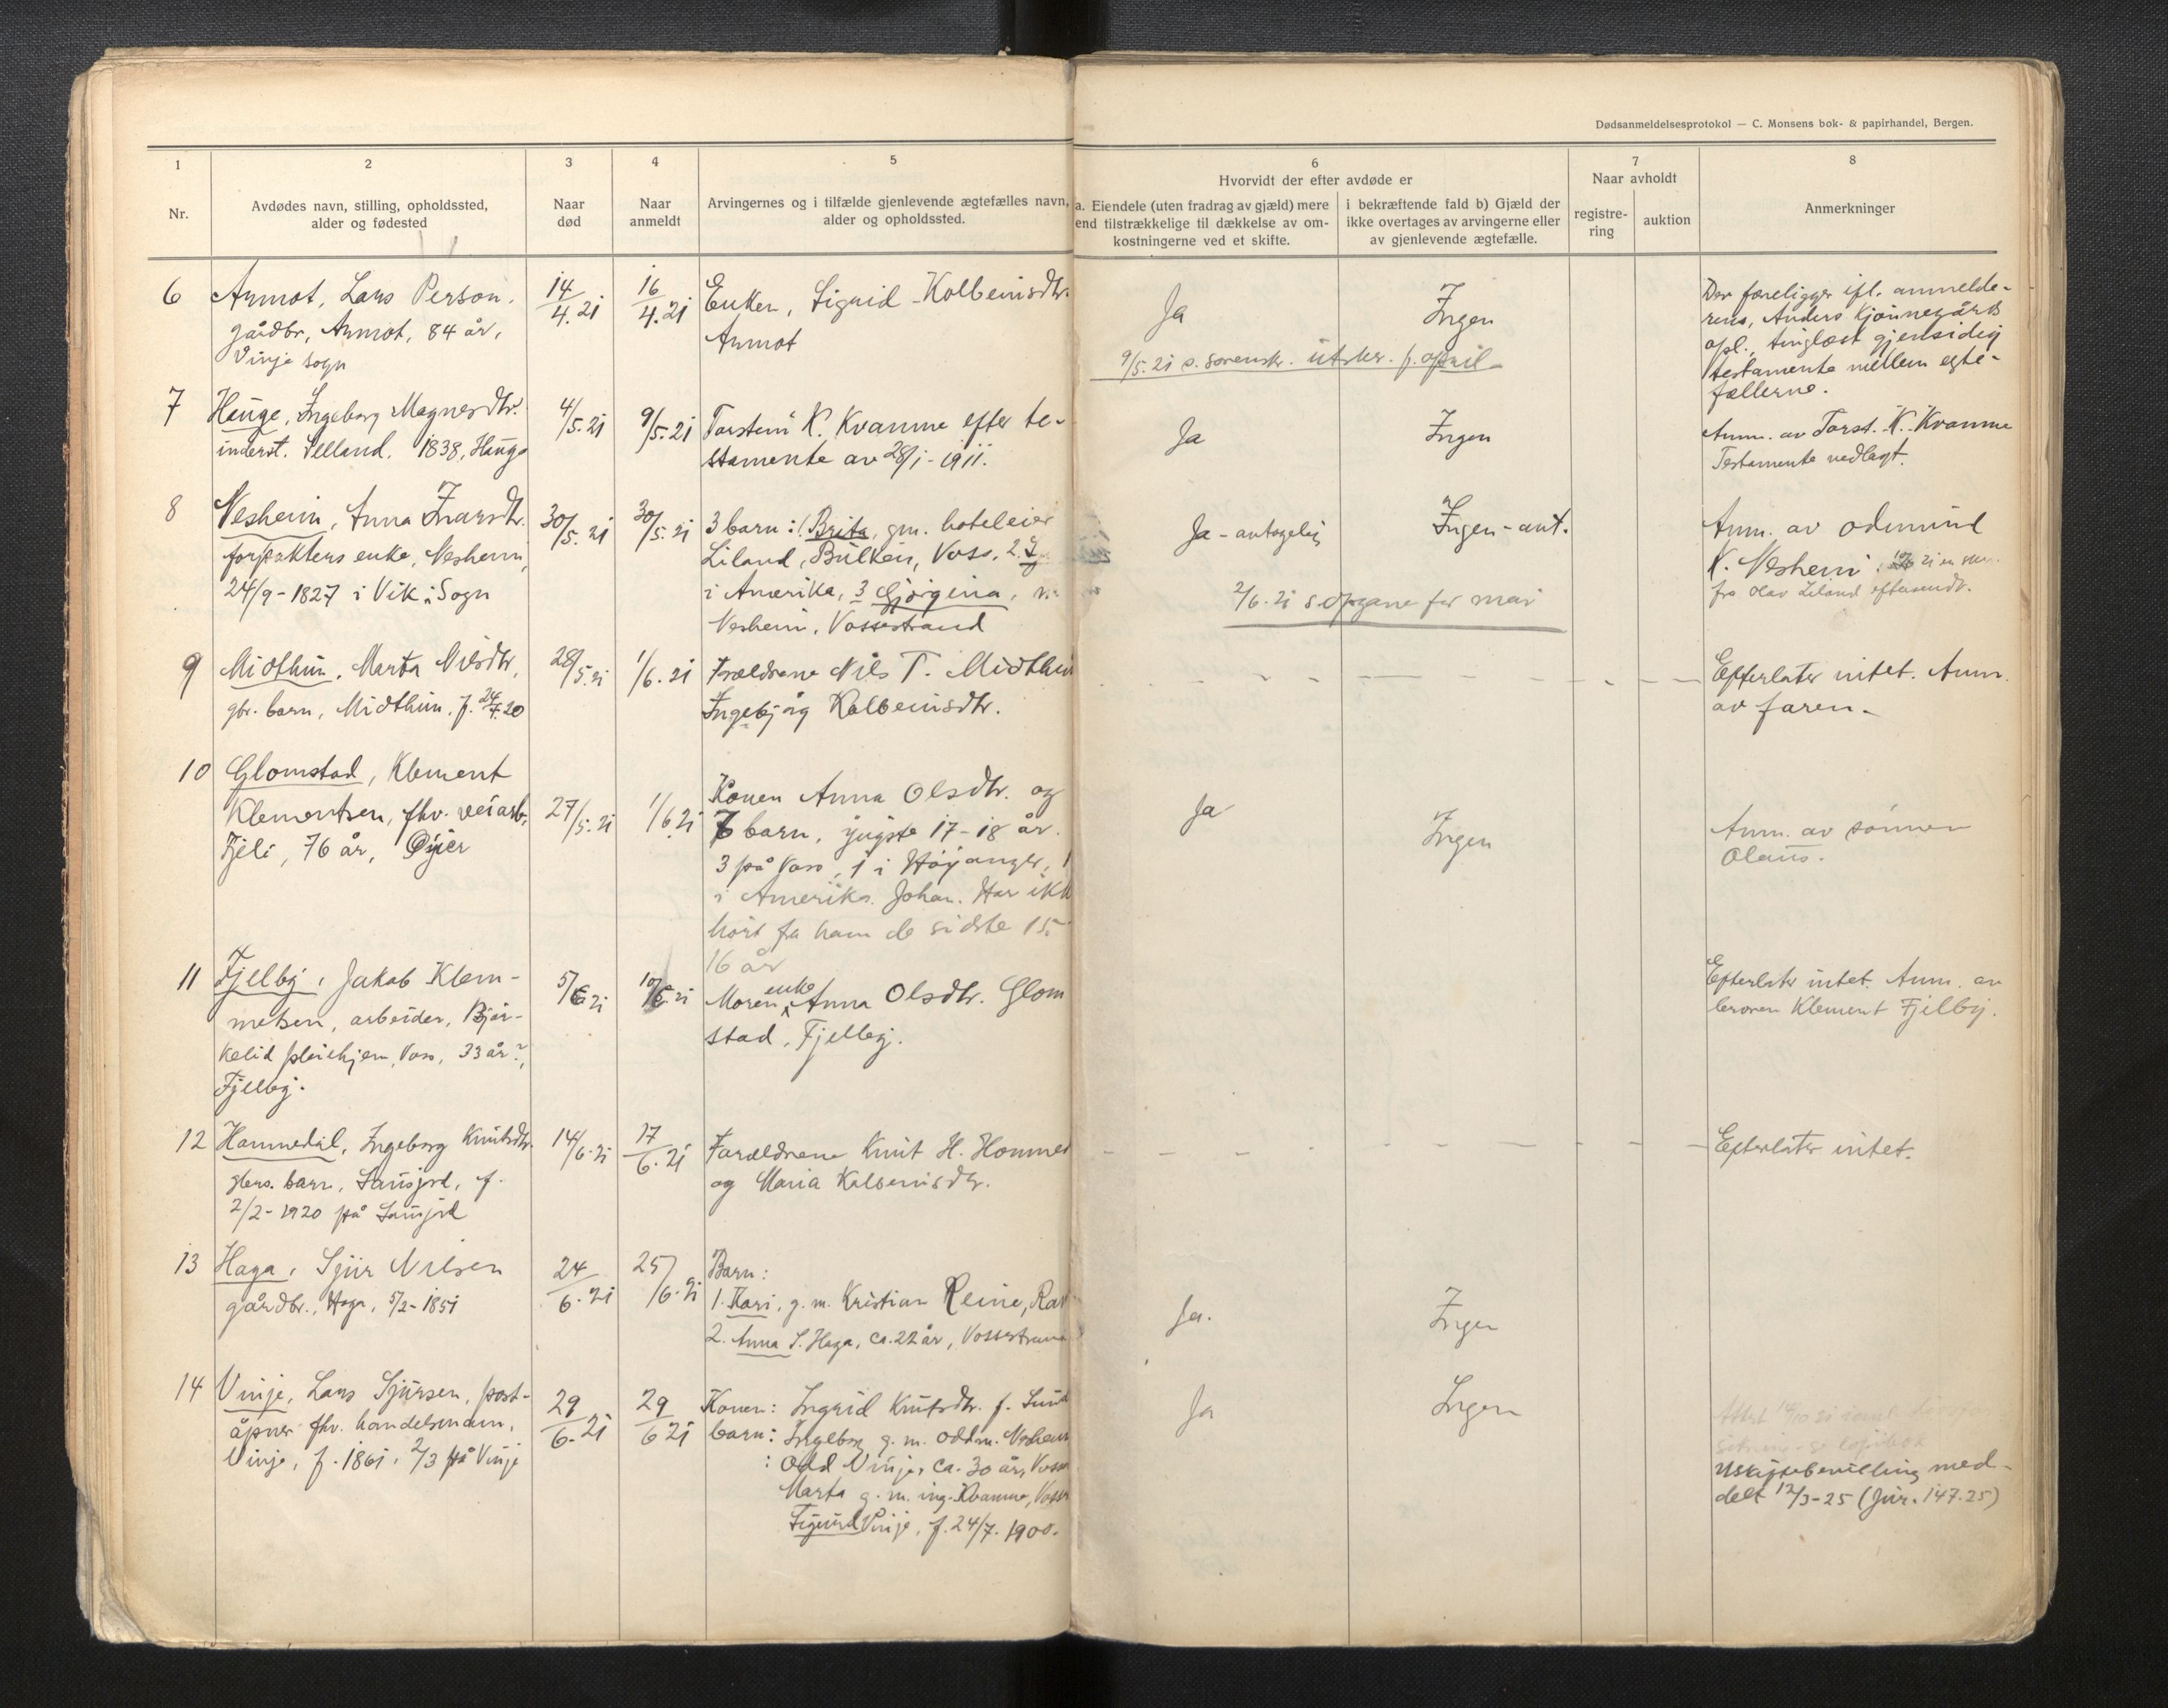 Dødsanmeldelsesprotokol — C. Monsens bok- & papirhandel, Bergen.
1
Nr.
2
Avdødes navn, stilling, opholdssted,
alder og fødested
3
Naar
død
4
Naar
anmeldt
5
Arvingernes og i tilfælde gjenlevende ægtefælles navn,
alder og opholdssted.
6
Hvorvidt der efter avdøde er
a. Eiendele (uten fradrag av gjæld) mere
end tilstrækkelige til dækkelse av om-
kostningerne ved et skifte.
i bekræftende fald b) Gjæld der
ikke overtages av arvingerne eller
av gjenlevende ægtefælle.
7
Naar avholdt
registre-
ring
auktion
8
Anmerkninger
6
Armot, Lars Person.
gårdbr, Armot, 84 år,
Vinje sogn
14/4.21
16/4.21
Enken, Sigrid Kolbeinsdtr.
Armot
Ja
Ingen
9/5.21 s. sorensk. utskr. f. april
Der foreligger ifl. anmelde-
rens, Anders Kjønnegårds
opl., tinglæst gjensidig
testamente mellem egte-
fællerne.
7
Hauge, Ingeborg Magnesdtr.
inderst. Selland. 1838, Hauge
4/5.21
9/5.21
Torstein K. Kvamme efter te-
stamente av 28/1-1911.
Ja
Ingen
Anm. av Torst. K. Kvamme
Testamente vedlagt.
8
Nesheim, Anna Ivarsdtr.
forpakters enke, Nesheim,
24/9-1827 i Vik i Sogn
30/5.21
30/5.21
3 barn: 1. Brita, gm. hoteleier
Liland, Bulken, Voss, 2.
i Amerika, 3 Gjørgina,
Nesheim, Vossestrand
Ja - antagelig
Ingen - ant.
2/6.21 s. opgave for mai
Anm. av Odmund
K. Nesheim. 21 en
fra Olav Liland eftersendt.
9
Midthun, Marta Nilsdtr,
gbr. barn, Midthun, f. 24/4.20
28/5.21
1/6.21
Forældrene Nils T. Midthun
Ingebjørg Kolbeinsdtr.
Efterlater intet. Anm.
av faren.
10
Glomstad, Klement
Klementsen, fhv. veiarb,
Fjeli, 76 år, Øyer
27/5.21
1/6.21
Konen Anna Olsdtr. og
7 barn, yngste 17-18 år.
3 på Voss, 1 i Høyanger, 1
i Amerika. Johan. Har ikk
hørt fra ham de sidste 15-
16 år
Ja
Ingen
Anm. av sønnen
Olaus.
11
Fjelby, Jakob Klem-
metsen, arbeider, Bjør-
kelid pleiehjem, Voss, 33 år?,
Fjelby.
5/6.21
10/6.21
Moren enke Anna Olsdtr. Glom
stad, Fjelby.
Efterlater intet. Anm. av
broren Klement Fjelby.
12
Hommedal, Ingeborg Knutsdtr.
gbrs. barn, Sausjord, f.
2/2-1920 på Sausjord
14/6.21
17/6.21
Forældrene Knut H. Hommed
og Maria Kolbeinsdtr.
Efterlater intet.
13
Haga, Sjur Nilsen
gårdbr., Haga, 5/2-1851
24/6.21
25/6.21
Barn:
1. Kari, g.m. Kristian Reine, Rav
2. Anna S. Haga, ca. 22 år, Vossestrand
Ja.
Ingen
14
Vinje, Lars Sjursen, post-
åpner fhv. handelsmann,
Vinje, f. 1861, 2/3 på Vinje
29/6.21
29/6 21
Konen: Ingrid Knutsdtr. f. Sund
barn: Ingeborg g.m. Oddm. Nesheim
: Odd Vinje, ca. 30 år, Voss
Marta g.m. ing. Kvamme, Voss
Sigurd Vinje, f. 24/7. 1900.
Ja
Ingen
Attest 14/10 21
Uskiftebevilling med-
delt 12/3-25 (Jur. 147.25)